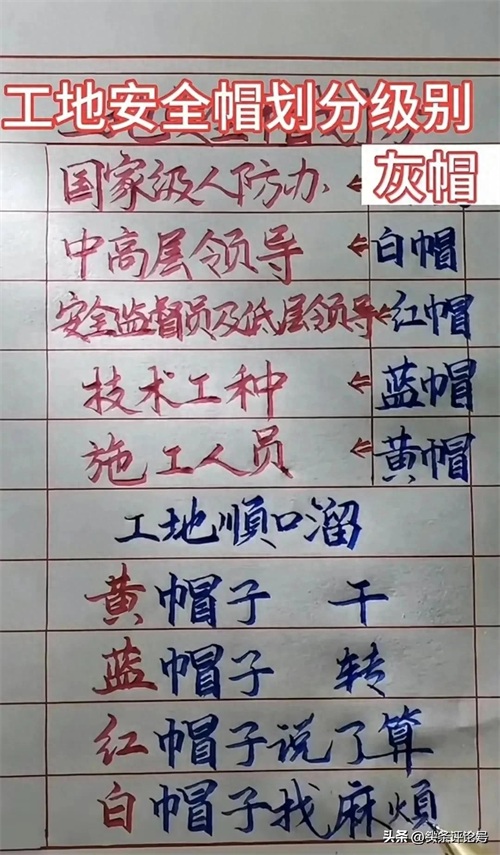 工地安全帽划分级别
国家级人防办 ← 灰帽
中高层领导 ⇐ 白帽
安全监督员及低层领导 ⇐ 红帽
技术工种 ⇐ 蓝帽
施工人员 ⇐ 黄帽
工地順口溜
黄帽子 干
蓝帽子 转
红帽子说了算
白帽子找麻煩
头条 @头条评论号